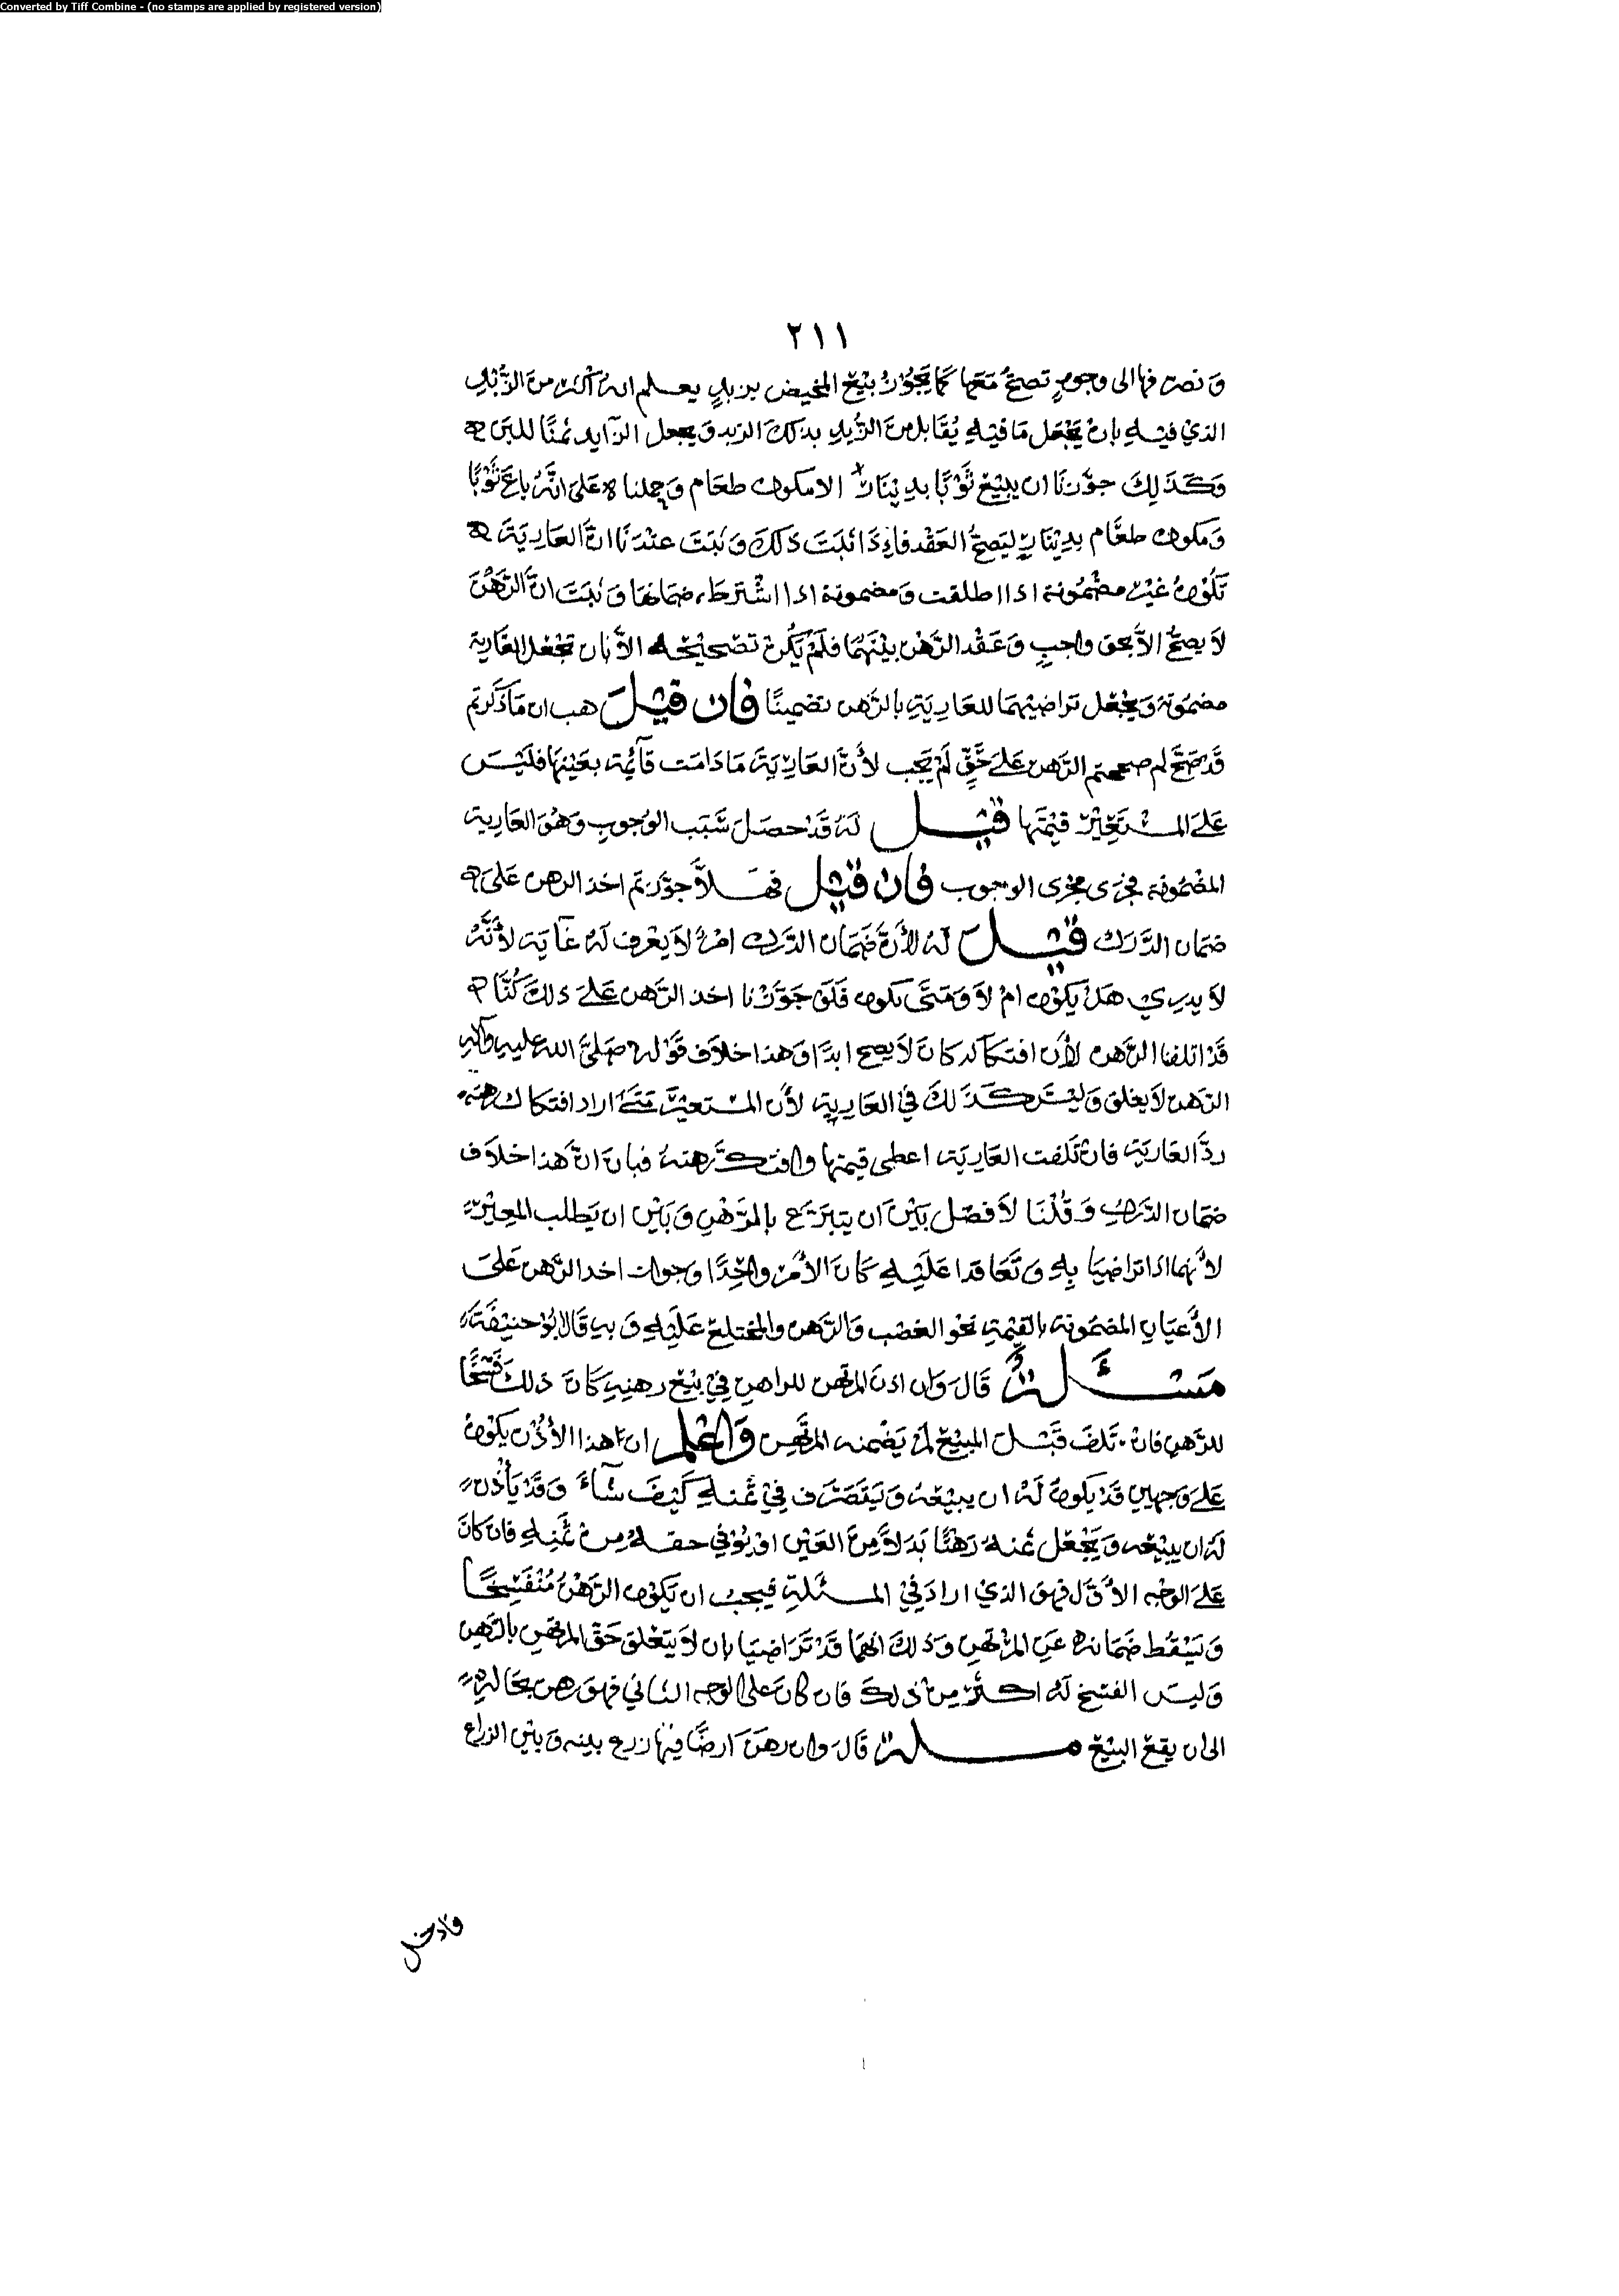 Converted by Tiff Combine - (no stamps are applied by registered version)
٢١١
ونصرفها الى وجوه تصح معها كما يجوز بيع المخيض بزبد يعلم انه اكثر من الزبد
الذي فيه بان يجعل ما فيه يقابل من الزبد بذلك الزبد ويجعل الزايد ثمنا للبن
وكذلك جوزنا ان يبيع ثوبا بدينار الا مكوك طعام وحملناه على انه باع ثوبا
ومكوك طعام بدينار ليصح العقد فاذا ثبت ذلك وثبت عندنا ان العارية
تكون غير مضمونة اذا اطلقت ومضمونة اذا اشترط ضمانها وثبت ان الرهن
لا يصح الا بحق واجب وعقد الرهن بينهما فلم يكن تصحيحه الا بان تجعل العارية
مضمونة ويجعل تراضيهما للعارية بالرهن تضمينا فان قيل هب ان ما ذكرتم
قد صح لم صححتم الرهن على حق لم يجب لأن العارية ما دامت قائمة بعينها فليس
على المستعير قيمتها قيل له قد حصل سبب الوجوب وهو العارية
المضمونة فجرى مجرى الوجوب فان قيل فهلا جوزتم اخذ الرهن على
ضمان الدرك قيل له لأن ضمان الدرك امر لا يعرف له غاية لأنه
لا يدري هل يكون ام لا ومتى يكون فلو جوزنا اخذ الرهن على ذلك كنا
قد اتلفنا الرهن لأن افتكاكه كان لا يصح ابدا وهذا خلاف قوله صلى الله عليه وآله
الرهن لا يغلق وليس كذلك في العارية لأن المستعير متى اراد افتكاك رهنه
رد العارية فان تلفت العارية اعطى قيمتها وافتك رهنه فبان ان هذا خلاف
ضمان الدرك وقلنا لا فصل بين ان يتبرع بالرهن وبين ان يطلب المعير
لأنهما اذا تراضيا به وتعاقدا عليه كان الأمر واحدا وجواز اخذ الرهن على
الأعيان المضمونة بالقيمة نحو الغصب والرهن والمختلع عليه وبه قال ابو حنيفة
مسئلة قال وان اذن المرتهن للراهن في بيع رهنه كان ذلك فسخا
للرهن فان تلف قبل المبيع لم يضمنه المرتهن واعلم ان هذا الأذن يكون
على وجهين قد يكون له ان يبيعه ويتصرف في ثمنه كيف شآء وقد يأذن
له ان يبيعه ويجعل ثمنه رهنا بدلا من العين او يوفي حقه من ثمنه فان كان
على الوجه الأول فهو الذي اراد في المسئلة فيجب ان يكون الرهن منفسخا
ويسقط ضمانه عن المرتهن وذلك انهما قد تراضيا بان لا يتعلق حق المرتهن بالرهن
وليس الفسخ له اكثر من ذلك فان كان على الوجه الثاني فهو رهن بحاله
الى ان يقع البيع مسئلة قال وان رهن ارضا فيها زرع بينه وبين الزراع
فادخل